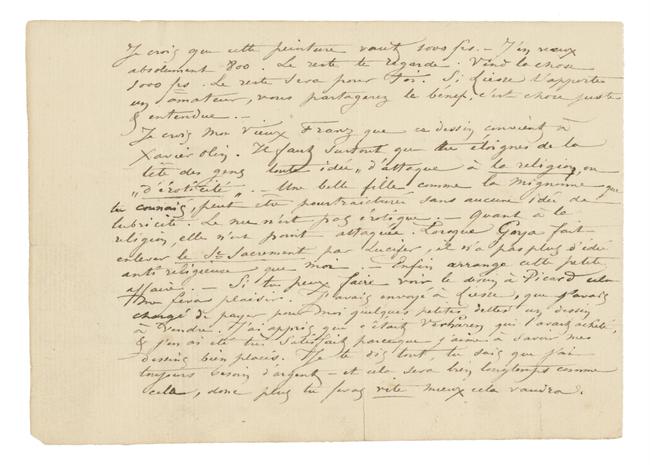 Je crois que cette peinture vaut 1000 frs. – J'en veux
absolument 800. Le reste te regarde. Vend la chose
1000 frs. Le reste sera pour toi. Si Liesse t'apporte
un amateur, vous partagerez le bénef; c'est chose juste
& entendue. –
Je crois mon vieux Franz que ce dessin convient à
Xavier Olin. Il faut surtout que tu éloignes de la
tête des gens toute idée „d'attaque à la religion, ou
„d'éroticité". – Une belle fille comme la mignonne que
tu connais, peut être pourtraiturée sans aucune idée de
lubricité. Le nu n'est pas érotique. – Quant à la
religion, elle n'est point attaquée. Lorsque Goya fait
enlever le St Sacrement par Lucifer, il n'a pas plus d'idée
anti religieuse que moi. – Enfin arrange cette petite
affaire. – Si tu peux faire voir le dessin à Picard cela
me ferais plaisir. J'avais envoyé à Liesse, que j'avais
chargé de payer pour moi quelques petites dettes un dessin
à vendre. J'ai appris que c'était Verhaeren qui l'avait acheté,
& j'en ai été très satisfait parceque j'aime à savoir mes
dessins bien placés. Je te dis tout, tu sais que j'ai
toujours besoin d'argent – et cela sera bien longtemps comme
cela, donc plus tu feras vite mieux cela vaudra.